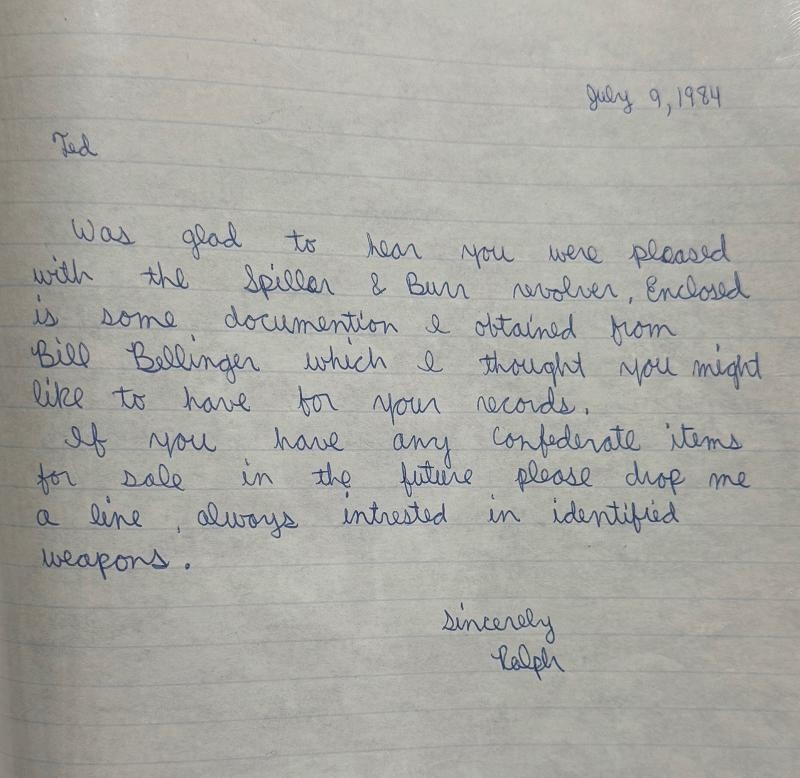 July 9, 1984
Ted
Was glad to hear you were pleased
with the Spiller & Burr revolver, Enclosed
is some documention I obtained from
Bill Bellinger which I thought you might
like to have for your records.
If you have any Confederate items
for sale in the future please drop me
a line, always intrested in identified
weapons.
Sincerely
Ralph